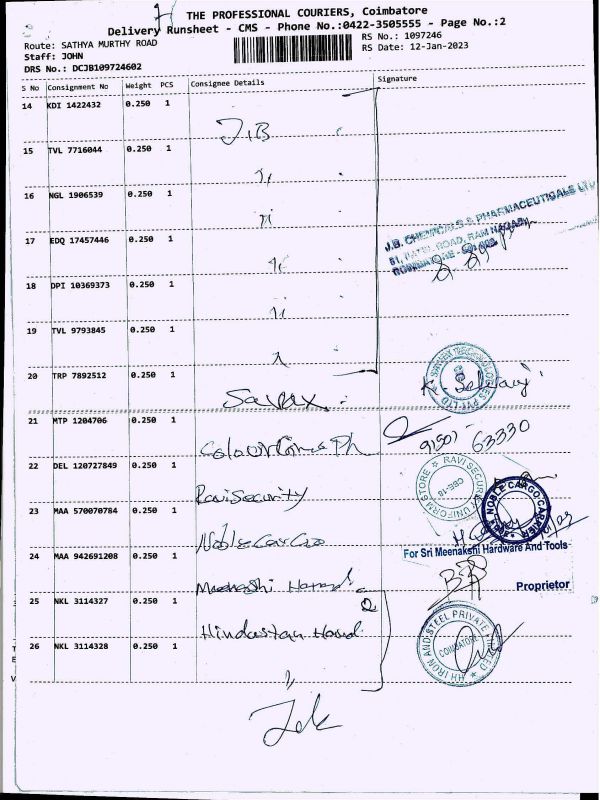 THE PROFESSIONAL COURIERS, Coimbatore
Delivery Runsheet - CMS - Phone No.:0422-3505555 - Page No.:2
Route: SATHYA MURTHY ROAD
RS No.: 1097246
Staff: JOHN
RS Date: 12-Jan-2023
DRS No.: DCJB109724602
S No Consignment No Weight PCS Consignee Details Signature
14 KDI 1422432 0.250 1
J.B
15 TVL 7716044 0.250 1
16 NGL 1906539 0.250 1
J.B. CHEMICALS & PHARMACEUTICALS LTD
81, PATEL ROAD, RAM NAGAR
COIMBATORE -
17 EDQ 17457446 0.250 1
18 DPI 10369373 0.250 1
19 TVL 9793845 0.250 1
20 TRP 7892512 0.250 1
K. Selvaraj
21 MTP 1204706 0.250 1
91501 63330
22 DEL 120727849 0.250 1
RAVI SECURITY UNIFORM STORE
CBE-18
Ravi Security
23 MAA 570070784 0.250 1
NOBLE CARGO CARRIER
Noble Cargo
24 MAA 942691208 0.250 1
For Sri Meenakshi Hardware And Tools
Proprietor
25 NKL 3114327 0.250 1
Hindustan Hard
26 NKL 3114328 0.250 1
HH IRON AND STEEL PRIVATE LIMITED
COIMBATORE